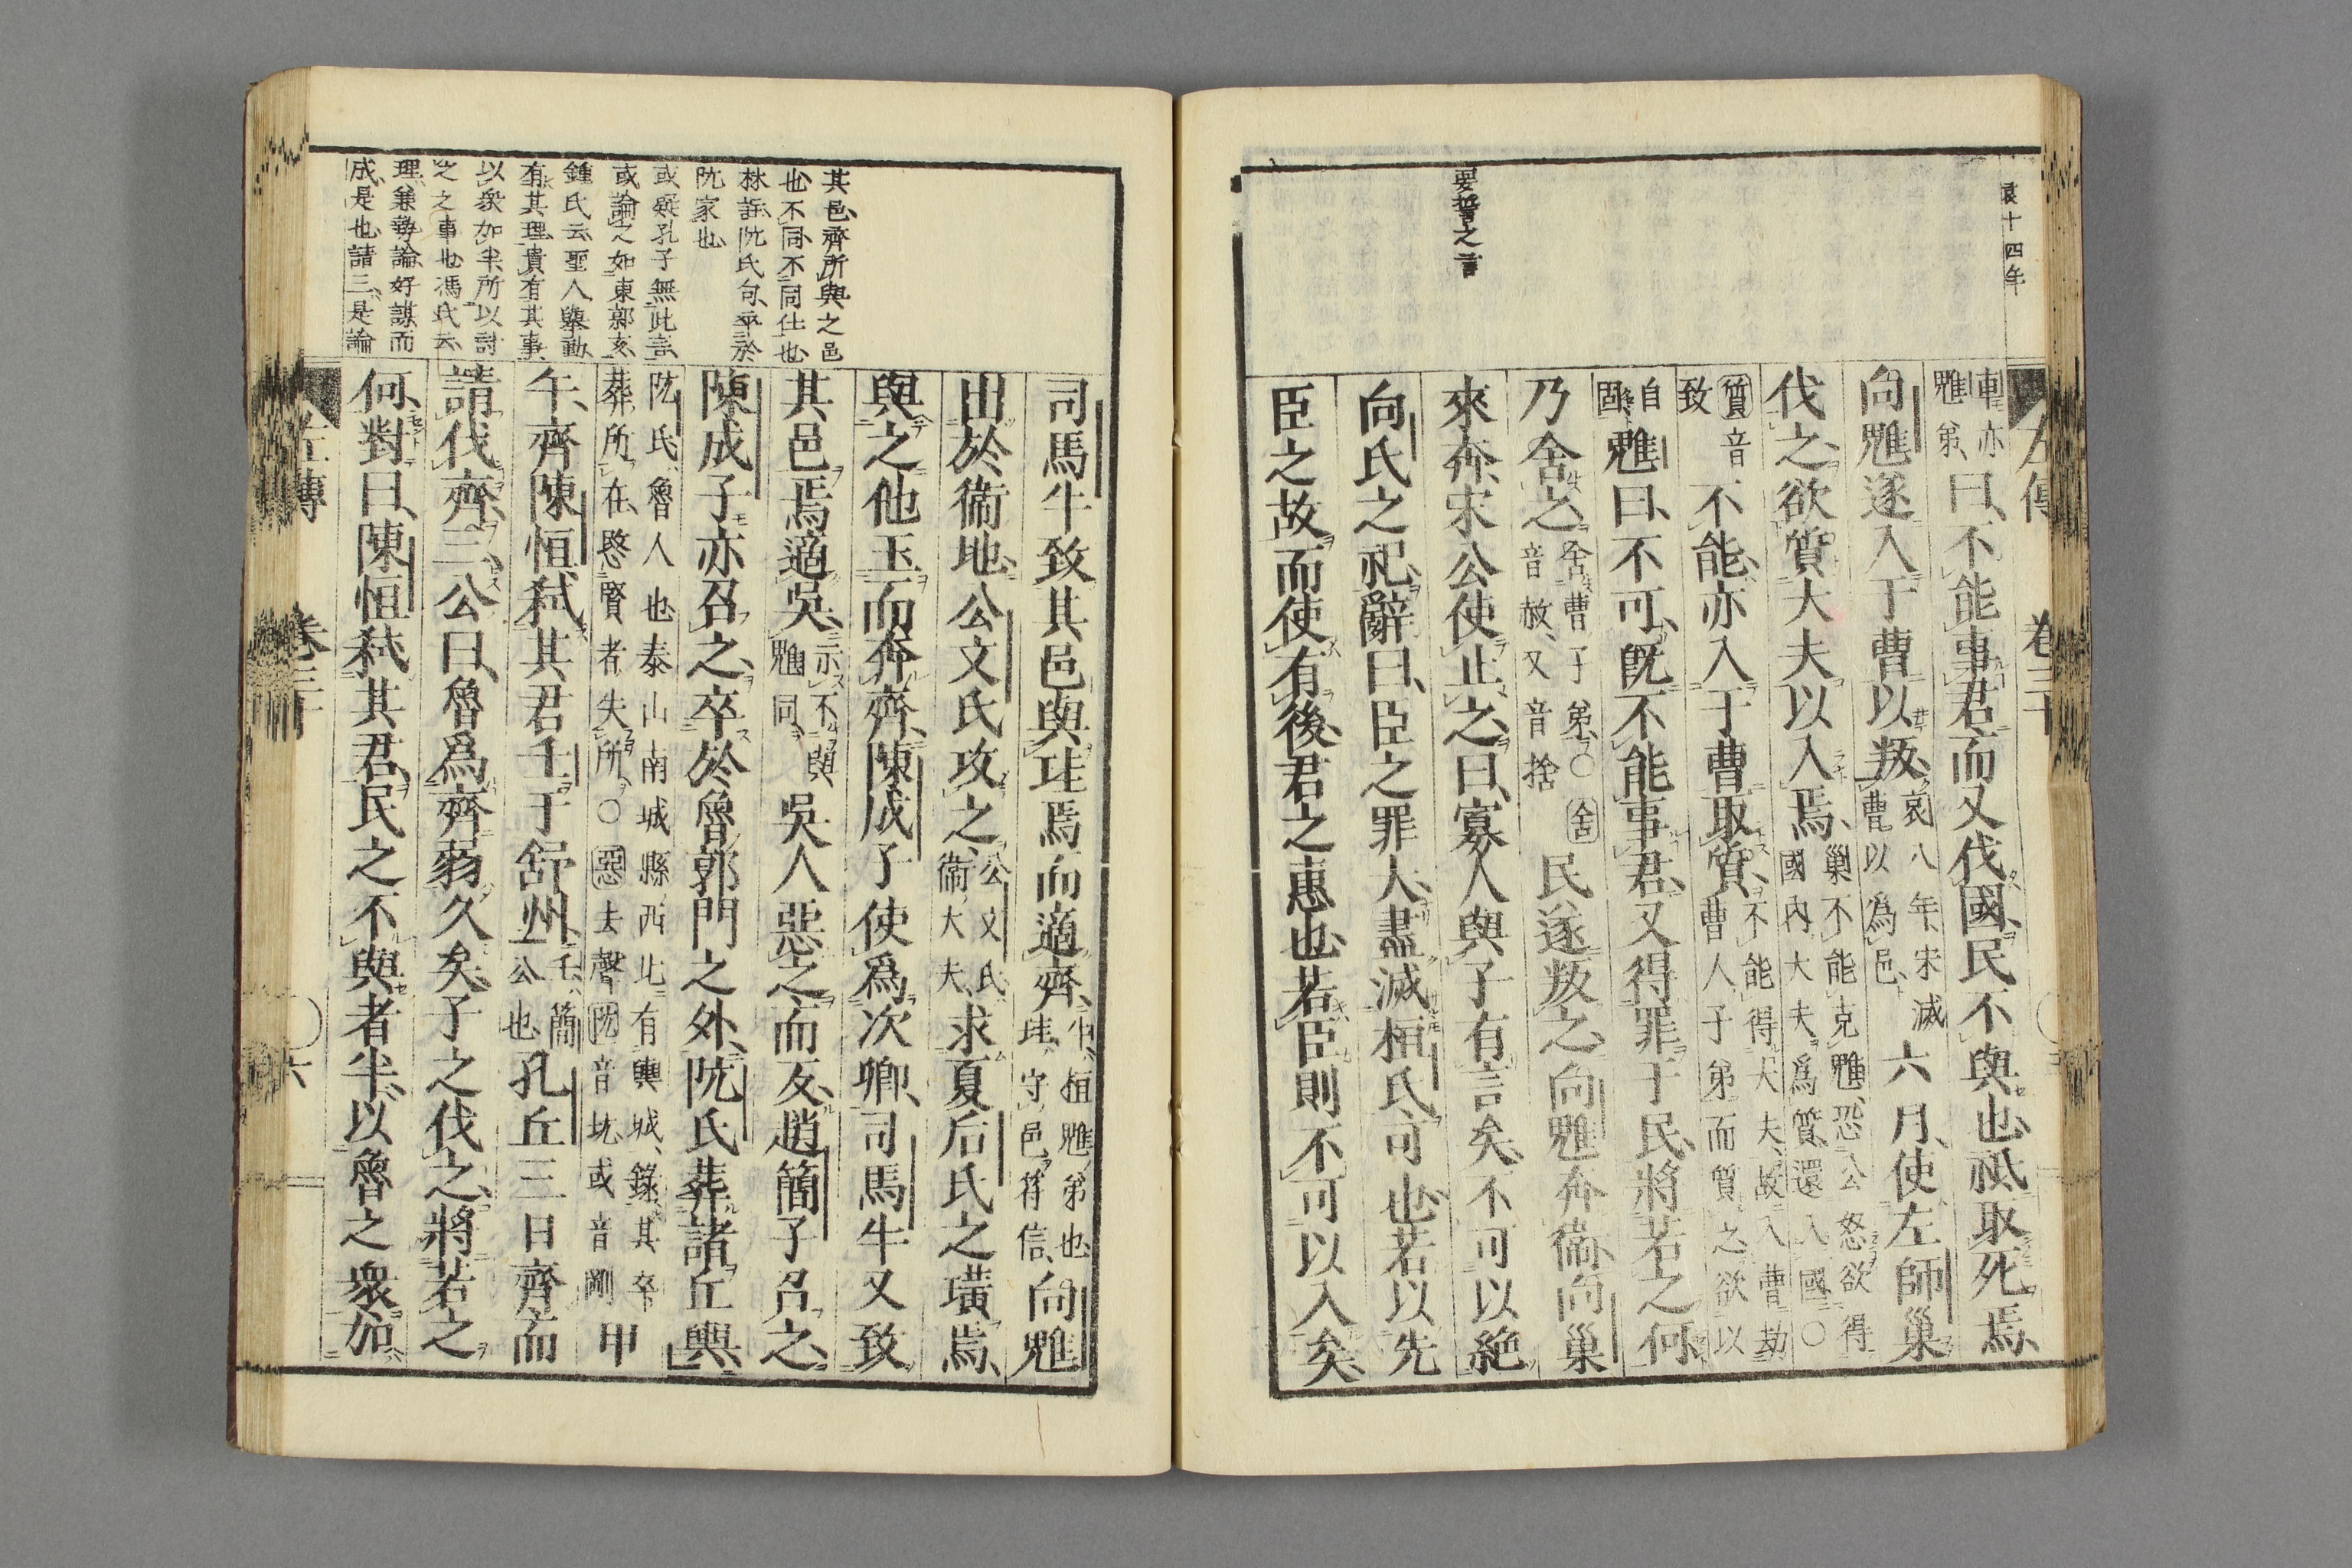 哀十四年
要誓之言
左傳 卷三十
車亦
魋弟曰不能事君而又伐國民不與也祗取死焉
向魋遂入于曹以叛哀八年宋滅
曹以爲邑六月使左師巢
伐之欲質大夫以入焉巢不能克魋恐公怒欲得
國內大夫爲質還入國○
質音
致不能亦入于曹取質不能得大夫故入曹劫
曹人子弟而質之欲以
自
固魋曰不可旣不能事君又得罪于民將若之何
乃舍之舍曹子弟○舍
音赦又音捨民遂叛之向魋奔衞向巢
來奔宋公使止之曰寡人與子有言矣不可以絕
向氏之祀辭曰臣之罪大盡滅桓氏可也若以先
臣之故而使有後君之惠也若臣則不可以入矣
其邑齊所與之邑
也不同不同仕也
林註阬氏句平於
阬家也
或疑孔子無此言
或論之如東郭亥
鍾氏云聖人舉動
有其理貴有其事
以衆加半所以討
之之事也馮氏云
理兼勢論好謀而
成是也請三是論
司馬牛致其邑與珪焉而適齊牛桓魋弟也
珪守邑符信向魋
出於衞地公文氏攻之公文氏
衞大夫求夏后氏之璜焉
與之他玉而奔齊陳成子使爲次卿司馬牛又致
其邑焉適吳示不與
魋同吳人惡之而反趙簡子召之
陳成子亦召之卒於魯郭門之外阬氏葬諸丘輿
阬氏魯人也泰山南城縣西北有輿城錄其卒
葬所在愍賢者失所○惡去聲阬音坑或音剛甲
午齊陳恒弑其君壬于舒州壬簡
公也孔丘三日齊而
請伐齊三公曰魯爲齊弱久矣子之伐之將若之
何對曰陳恒弑其君民之不與者半以魯之衆加
左傳 卷三十 六